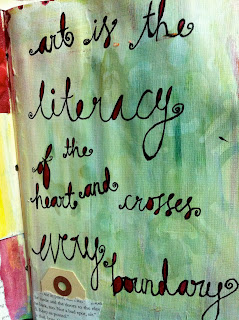 art is the
literacy
of the
heart and crosses
every
boundary